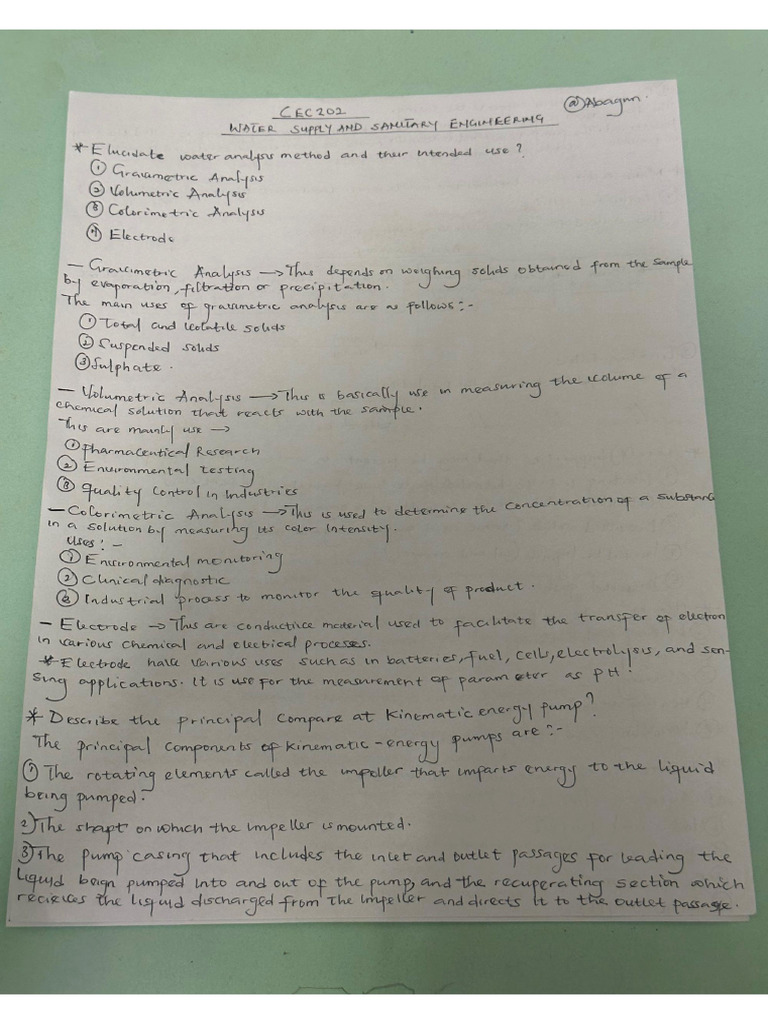 CEC202
@Abagnn.
WATER SUPPLY AND SANITARY ENGINEERING
* Elucidate water analysis method and their intended use?
① Gravimetric Analysis
② Volumetric Analysis
③ Colorimetric Analysis
④ Electrode
— Gravimetric Analysis → This depends on weighing solids obtained from the sample
by evaporation, filtration or precipitation.
The main uses of gravimetric analysis are as follows:-
① Total and volatile solids
② Suspended solids
③ Sulphate.
— Volumetric Analysis → This is basically use in measuring the volume of a
chemical solution that reacts with the sample.
This are mainly use →
① Pharmaceutical Research
② Environmental testing
③ Quality Control in Industries
— Colorimetric Analysis → This is used to determine the concentration of a substance
in a solution by measuring its color intensity.
Uses:-
① Environmental monitoring
② Clinical diagnostic
③ Industrial process to monitor the quality of product.
— Electrode → This are conductive material used to facilitate the transfer of electron
in various chemical and electrical processes.
* Electrode have various uses such as in batteries, fuel, cells, electrolysis, and sen-
sing applications. It is use for the measurement of parameter as PH.
* Describe the principal compare at kinematic energy pump?
The principal components of kinematic-energy pumps are:-
① The rotating elements called the impeller that imparts energy to the liquid
being pumped.
2) The shapt on which the impeller is mounted.
③ The pump casing that includes the inlet and outlet passages for leading the
liquid beign pumped into and out of the pump, and the recuperating section which
recieves the liquid discharged from the impeller and directs it to the outlet passage.